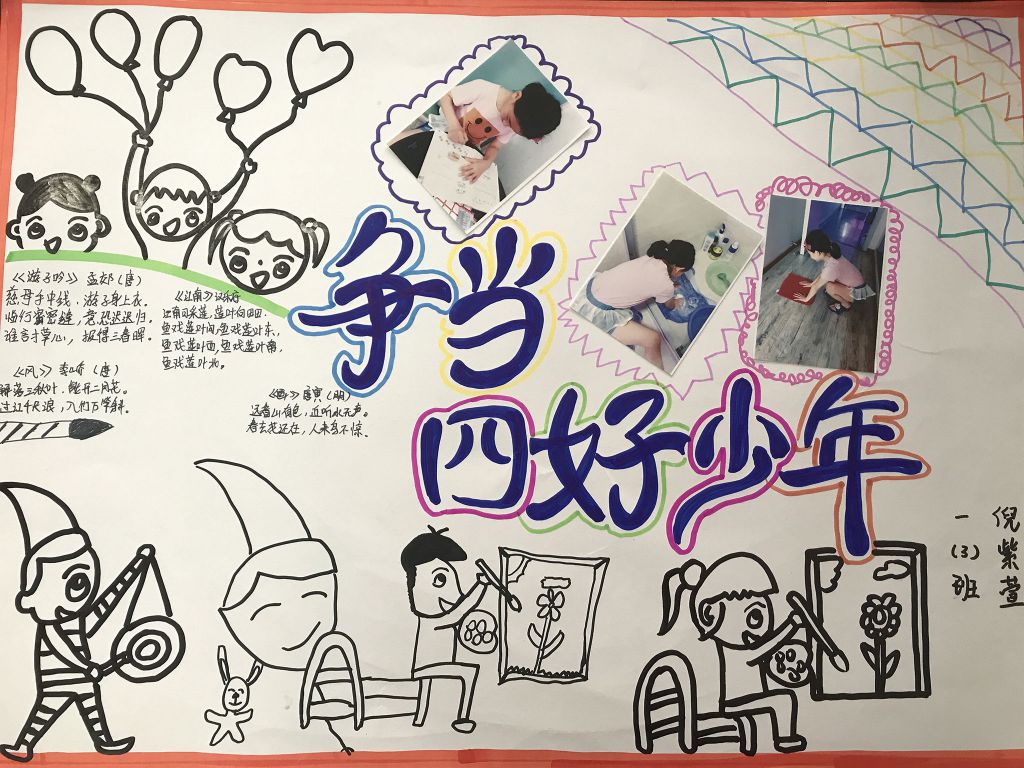 争当
四好少年
《游子吟》 孟郊(唐)
慈母手中线,游子身上衣。
临行密密缝,意恐迟迟归。
谁言寸草心,报得三春晖。
《江南》汉乐府
江南可采莲,莲叶何田田。
鱼戏莲叶间,鱼戏莲叶东,
鱼戏莲叶西,鱼戏莲叶南,
鱼戏莲叶北。
《风》 李峤(唐)
解落三秋叶,能开二月花。
过江千尺浪,入竹万竿斜。
《画》唐寅(明)
远看山有色,近听水无声。
春去花还在,人来鸟不惊。
一(3)班
倪紫萱